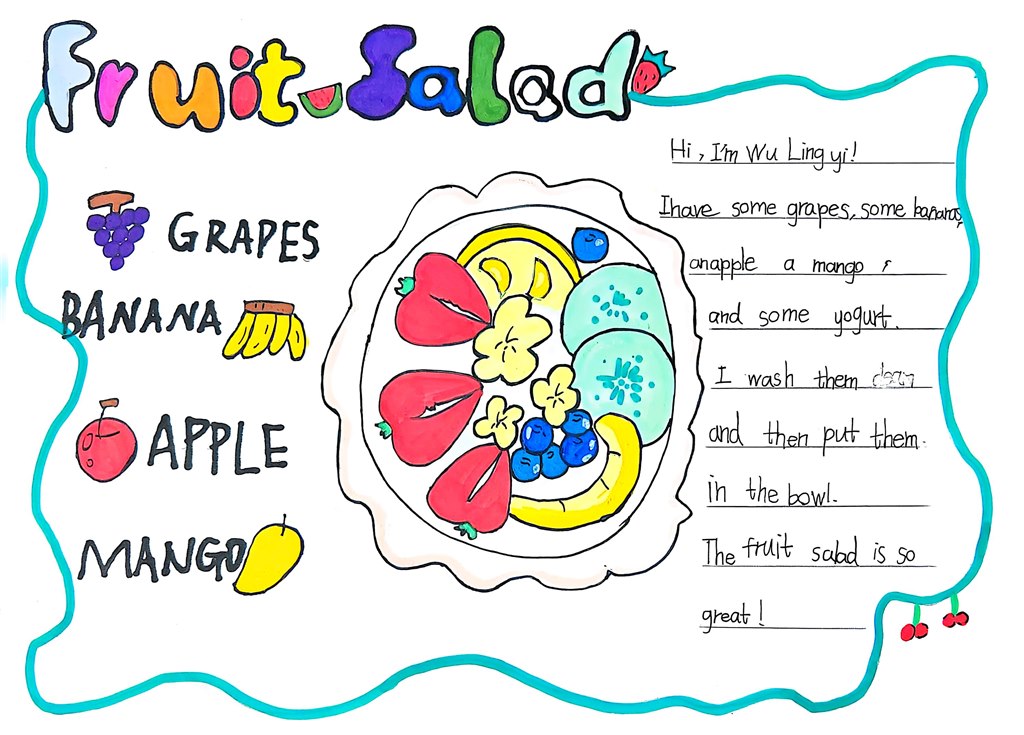 Fruit Salad
GRAPES
BANANA
APPLE
MANGO
Hi, I'm Wu Ling yi!
I have some grapes, some bananas,
an apple a mango ,
and some yogurt.
I wash them clean
and then put them
in the bowl.
The fruit salad is so
great!